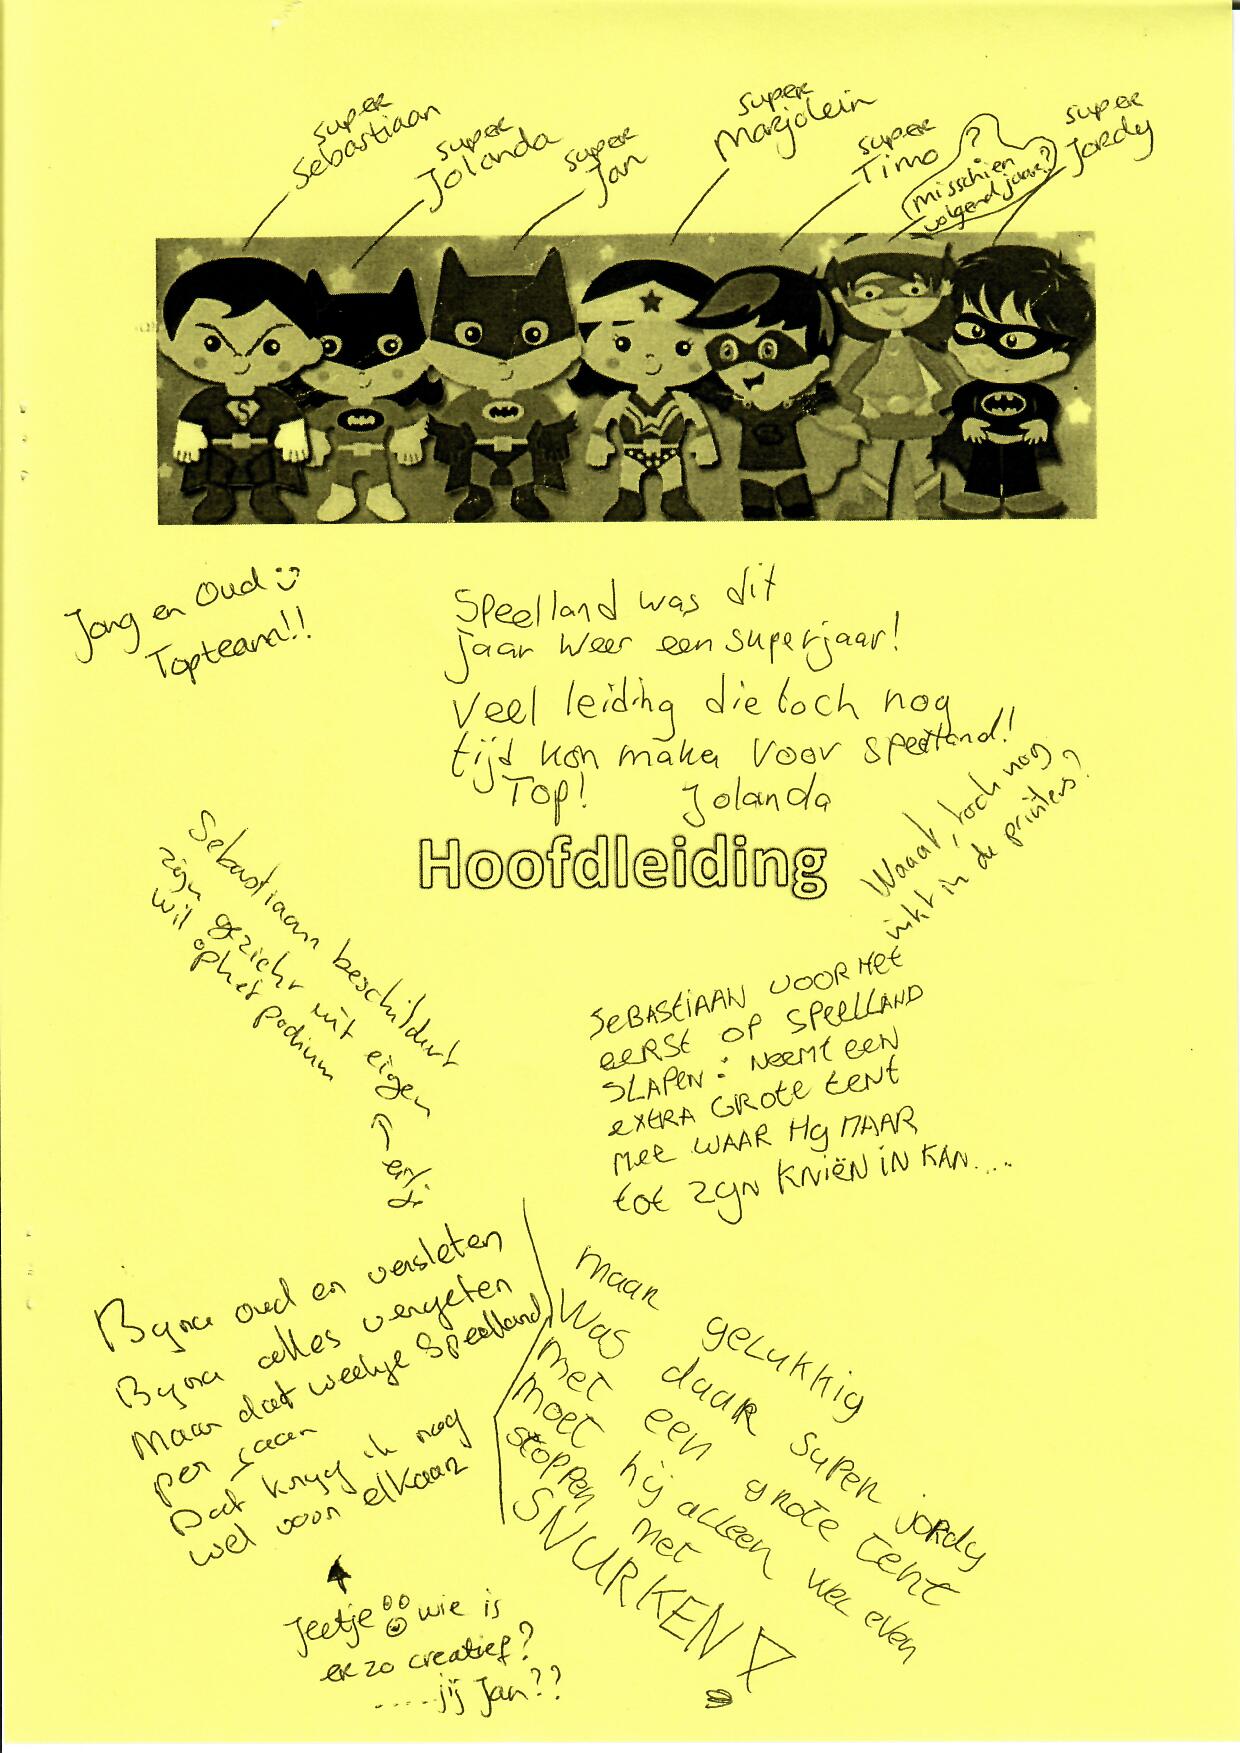 super
Sebastiaan
super
Jolanda
super
Jan
super
Marjolein
super
Timo
?
misschien
volgend jaar?
super
Jordy
Jong en Oud
Topteam!!
Speelland was dit
jaar weer een superjaar!
Veel leiding die toch nog
tijd kon maken voor speelland!
Top! Jolanda
Hoofdleiding
Waaat, toch nog
inkt in de printers?
Sebastiaan beschildert
zijn gezicht uit eigen
wil op het podium
SEBASTIAAN VOOR HET
EERST OP SPEELLAND
SLAPEN: NEEMT EEN
EXTRA GROTE TENT
MEE WAAR Hy MAAR
TOT ZyN KNIËN IN KAN....
Byna oud en versleten
Byna alles vergeten
Maar dat weekje Speelland
per jaar
Dat kryg ik nog
wel voor elkaar
maar gelukkig
Was daar super jordy
met een grote tent
moet hij alleen wel even
stoppen met
SNURKEN!
Jeetje wie is
er zo creatief?
.....jij Jan??